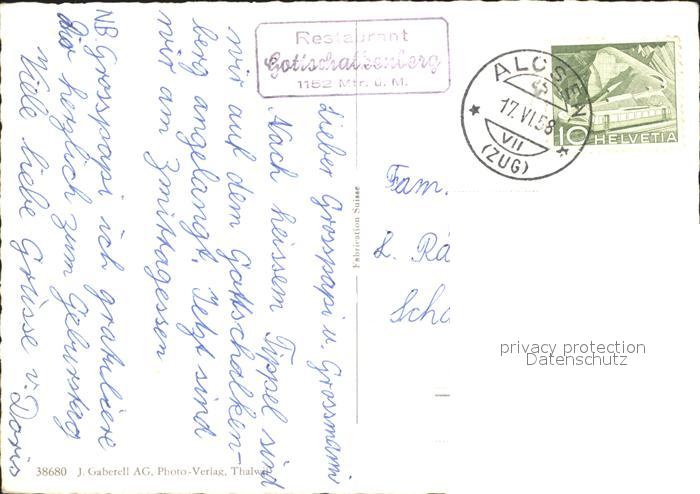 Restaurant
Gottschalkenberg
1152 Mtr. ü. M.
ALOSEN
17.VI.58
VII
(ZUG)
10 HELVETIA
Lieber Grosspapi u. Grossmami
Nach heissem Tippel sind
wir auf dem Gottschalken-
berg angelangt. Jetzt sind
wir am Zmittagessen
NB. Grosspapi ich gratuliere
dir herzlich zum Geburtstag
Viele liebe Grüsse v. Doris
Fabrication Suisse
Fam.
L. Rä
Scha
privacy protection
Datenschutz
38680 J. Gaberell AG, Photo-Verlag, Thalwil